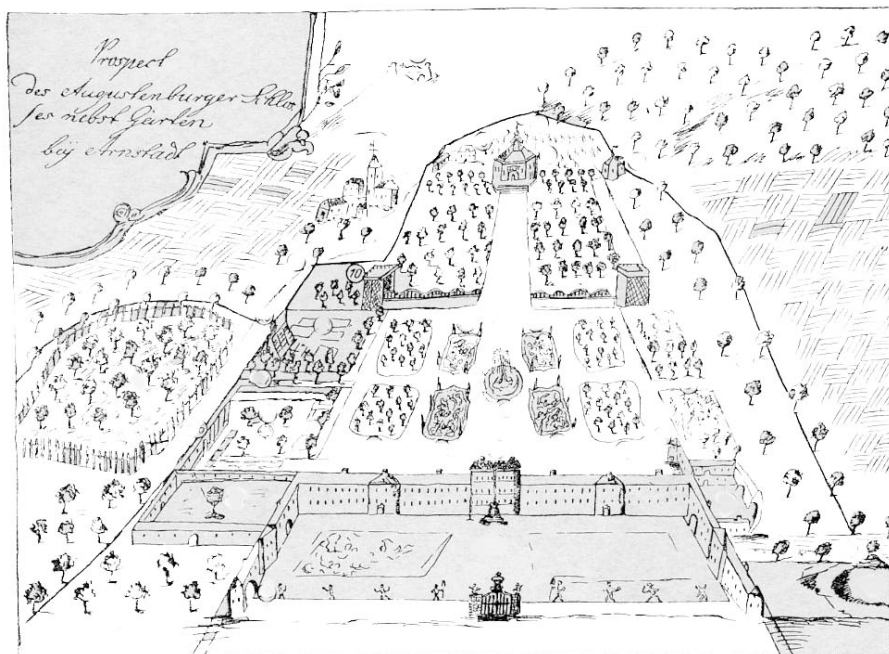 Prospect
des Augustenburger Schlos
ses nebst Garten
bey Arnstadt
10